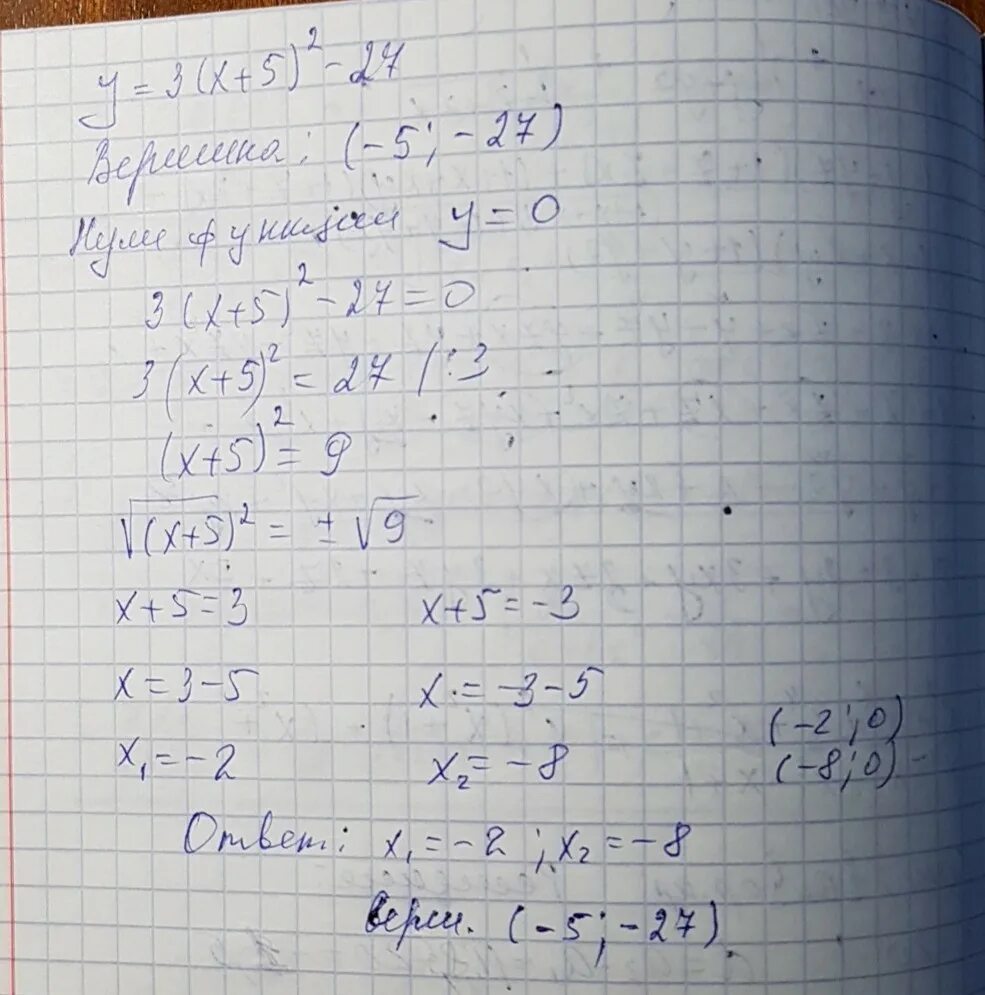 y = 3(x+5)² - 27
Вершина: (-5; -27)
Нули функции y = 0
3(x+5)² - 27 = 0
3(x+5)² = 27 | :3
(x+5)² = 9
√(x+5)² = ± √9
x+5=3 x+5=-3
x=3-5 x=-3-5
x₁=-2 x₂=-8
(-2; 0)
(-8; 0)
Ответ: x₁=-2; x₂=-8
верш. (-5; -27)